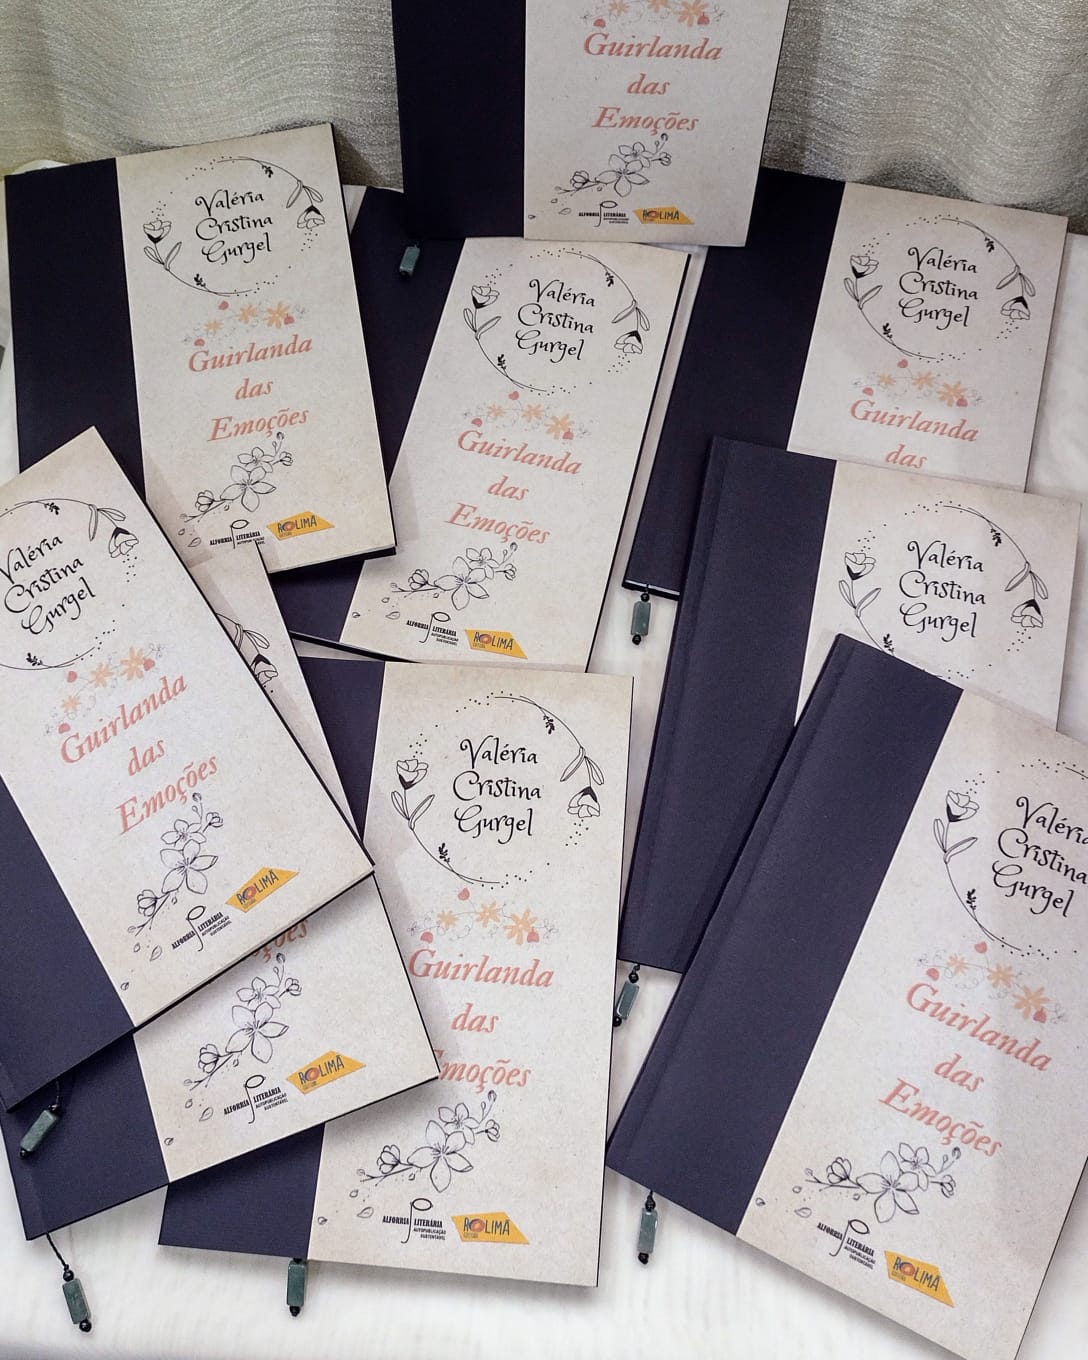 Guirlanda
das
Emoções
ALFORRIA LITERÁRIA
AUTOPUBLICAÇÃO
SUSTENTÁVEL
ROLIMÃ
EDITORA
Valéria
Cristina
Gurgel
Guirlanda
das
Emoções
ALFORRIA LITERÁRIA
AUTOPUBLICAÇÃO
SUSTENTÁVEL
ROLIMÃ
EDITORA
Valéria
Cristina
Gurgel
Guirlanda
das
Emoções
ALFORRIA LITERÁRIA
AUTOPUBLICAÇÃO
SUSTENTÁVEL
ROLIMÃ
EDITORA
Valéria
Cristina
Gurgel
Guirlanda
das
Valéria
Cristina
Gurgel
Guirlanda
das
Emoções
ALFORRIA LITERÁRIA
AUTOPUBLICAÇÃO
SUSTENTÁVEL
ROLIMÃ
EDITORA
Valéria
Cristina
Gurgel
Valéria
Cristina
Gurgel
Guirlanda
das
moções
ALFORRIA LITERÁRIA
AUTOPUBLICAÇÃO
SUSTENTÁVEL
ROLIMÃ
EDITORA
Valéria
Cristina
Gurgel
Guirlanda
das
Emoções
ALFORRIA LITERÁRIA
AUTOPUBLICAÇÃO
SUSTENTÁVEL
ROLIMÃ
EDITORA
ções
ALFORRIA LITERÁRIA
AUTOPUBLICAÇÃO
SUSTENTÁVEL
ROLIMÃ
EDITORA